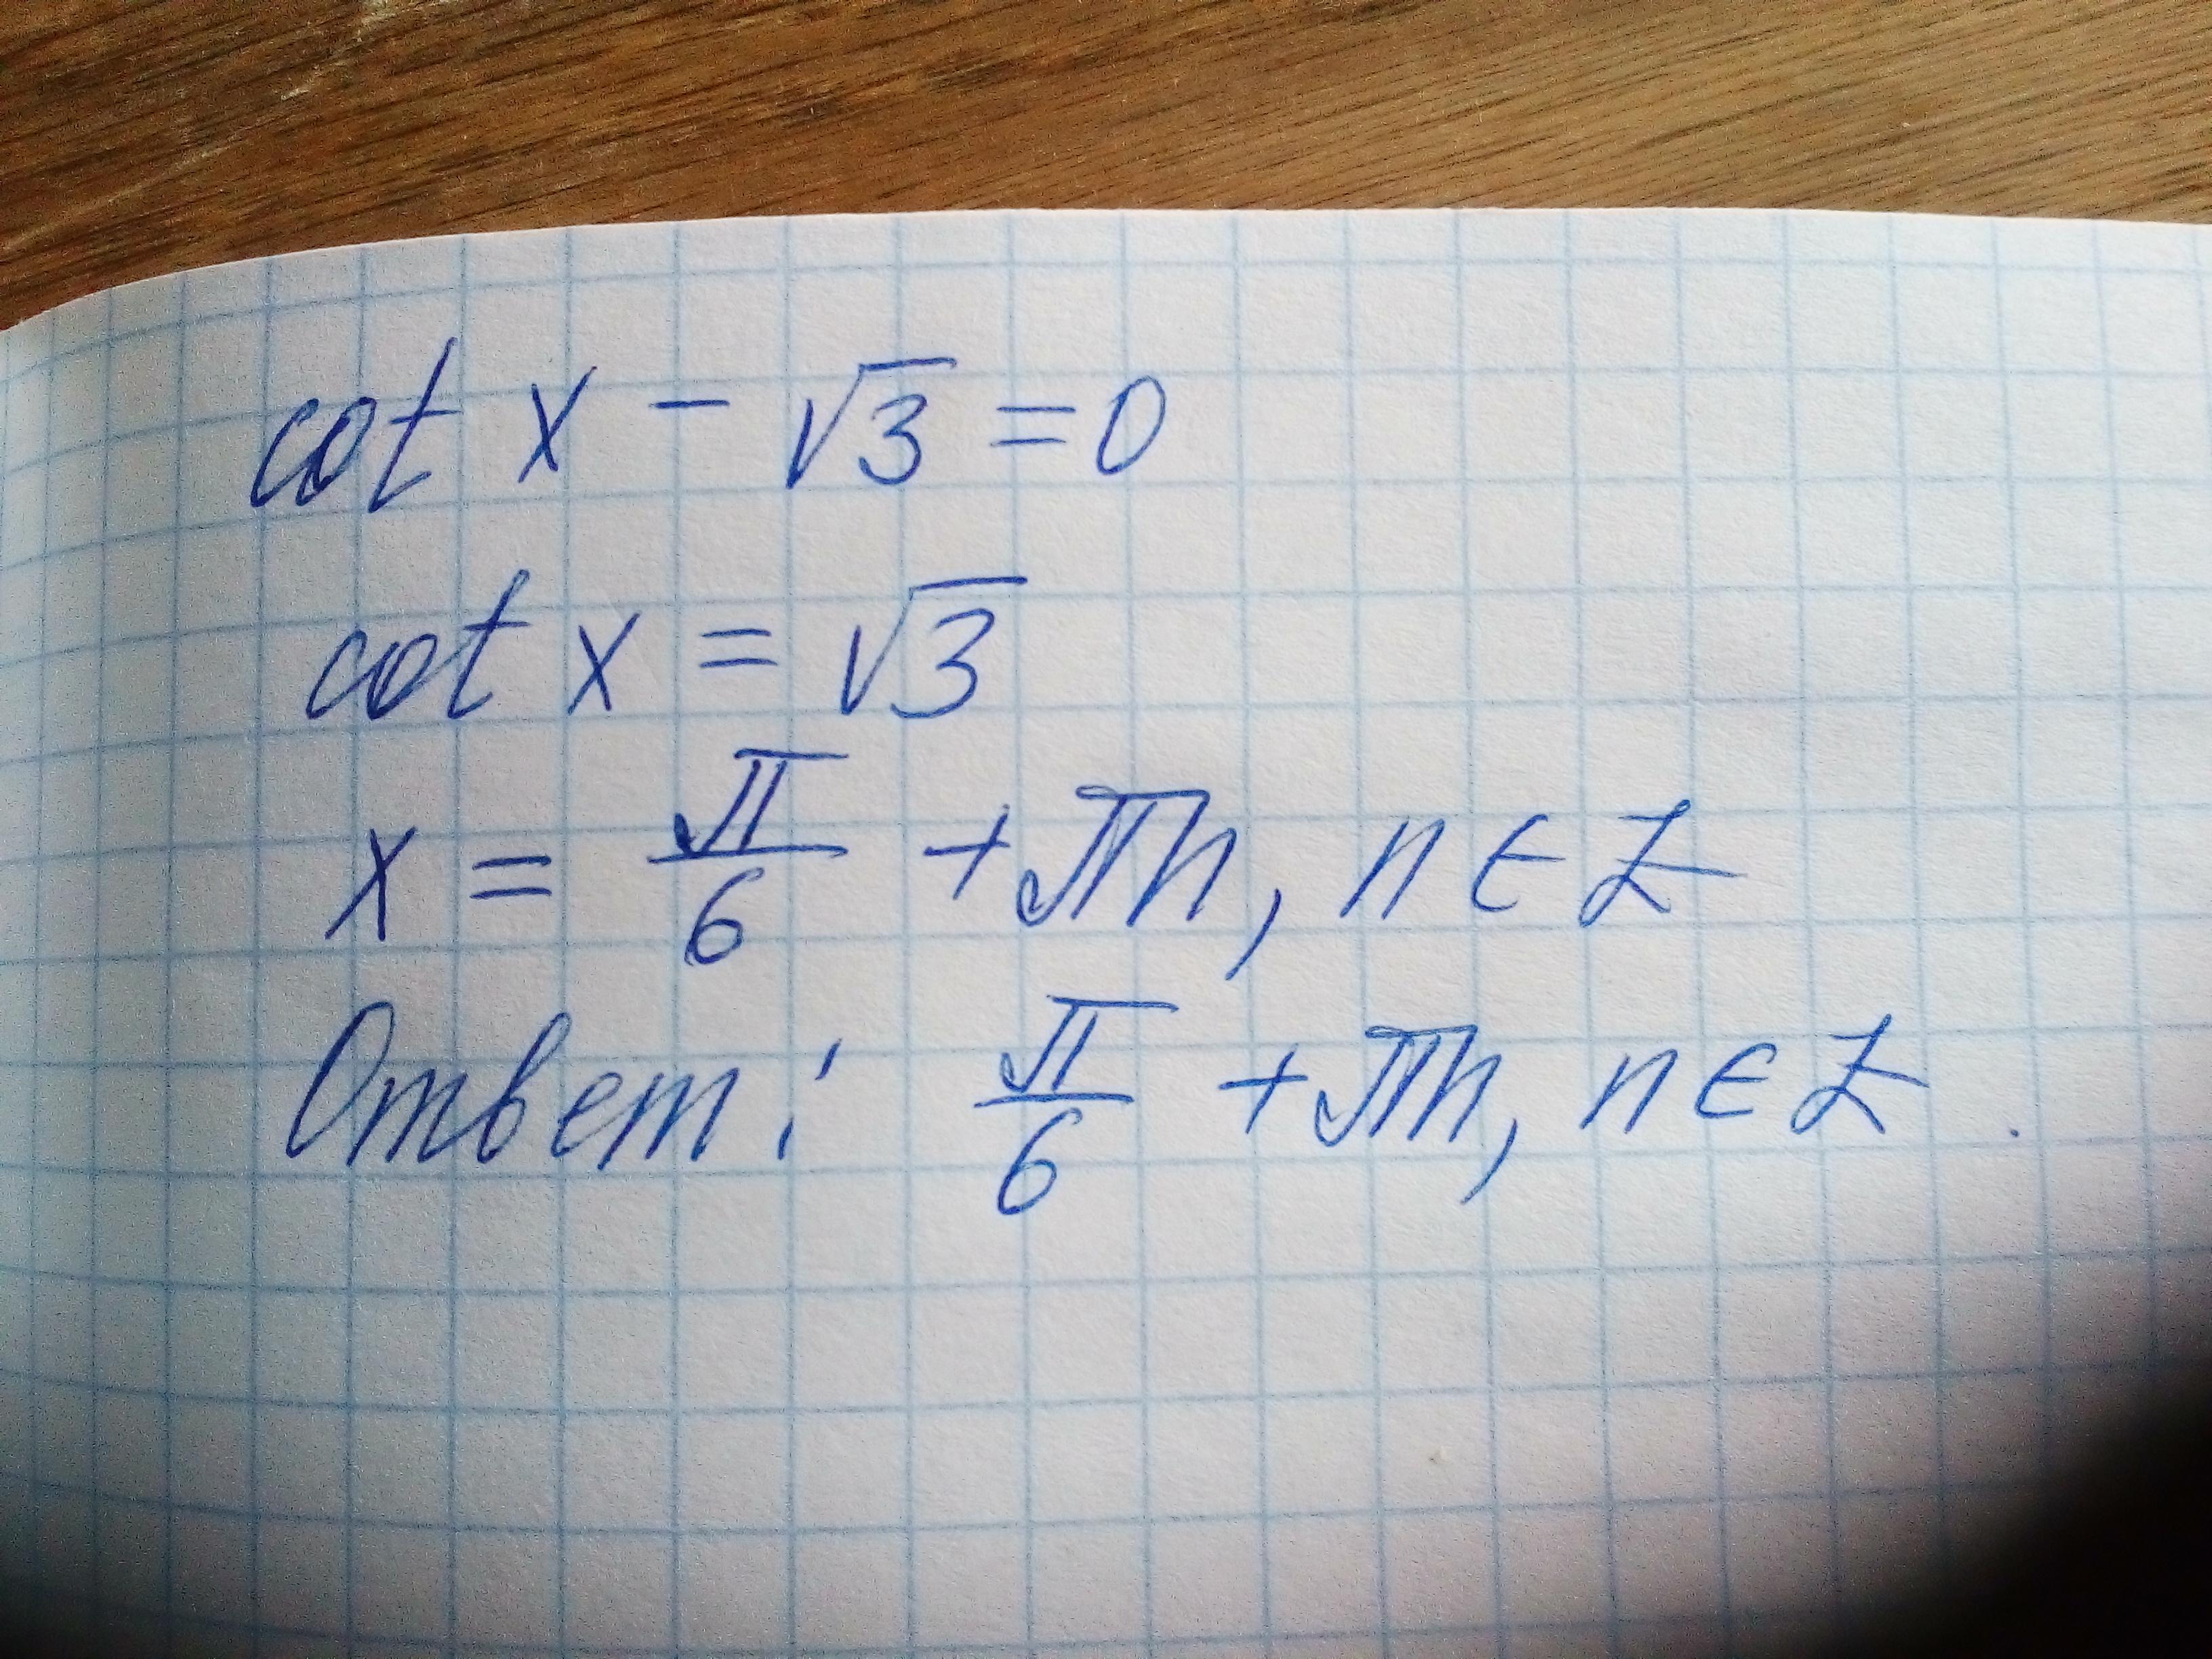 cot x - √3 = 0
cot x = √3
x = π/6 + πn, n ∈ Z
Ответ: π/6 + πn, n ∈ Z.